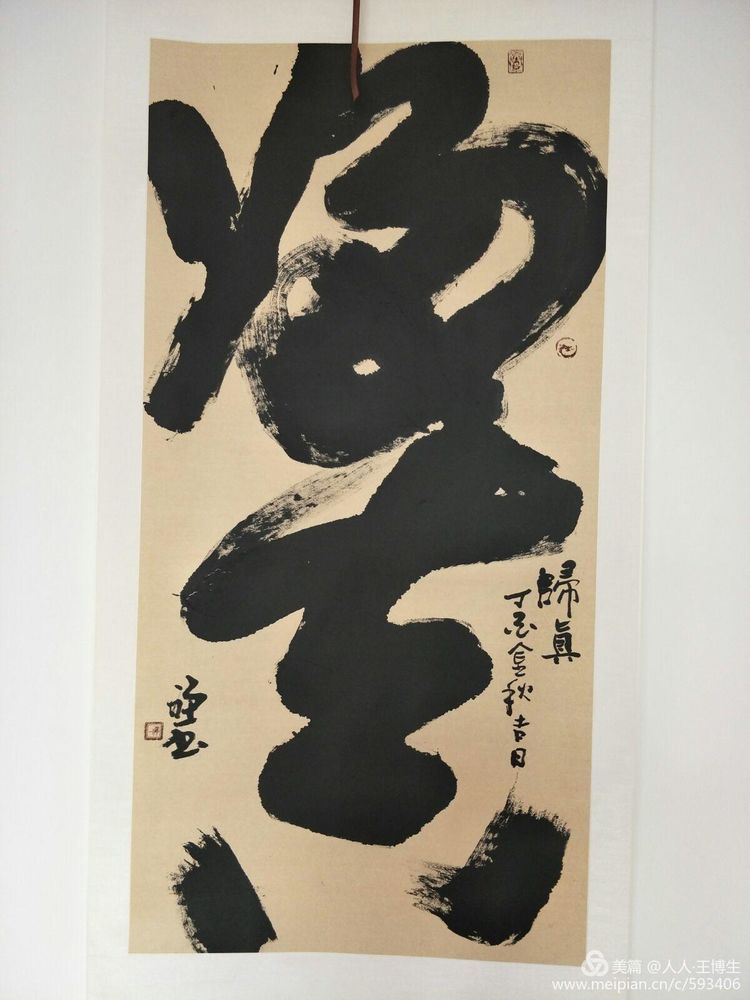 歸真
歸真
丁酉金秋吉日
书
美篇 @人人·王博生
www.meipian.cn/c/593406